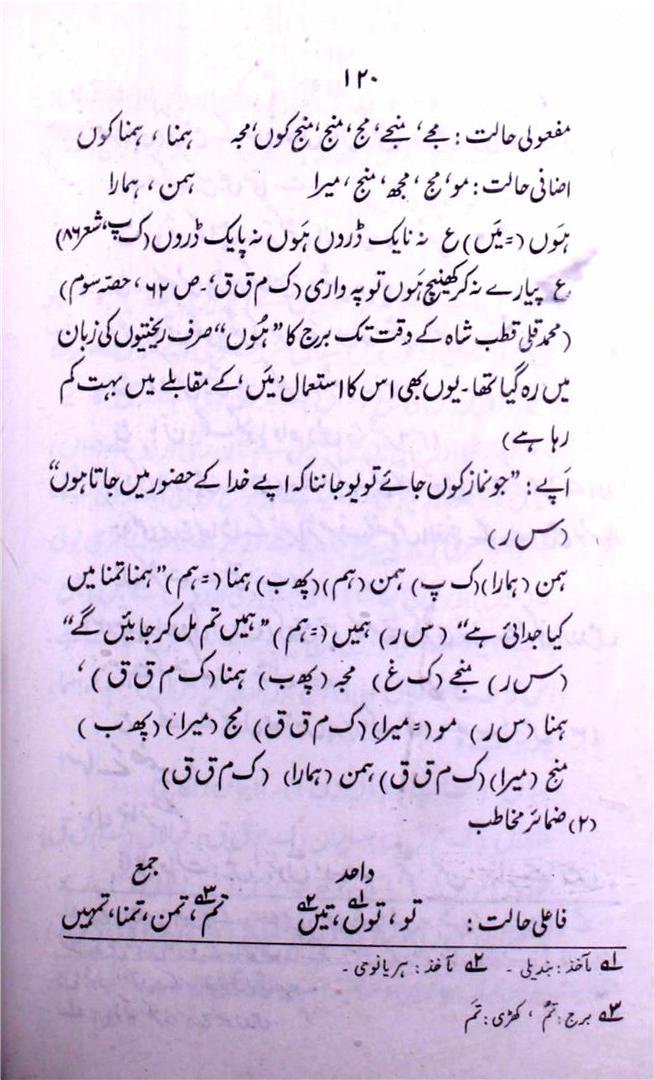 ۱۲۰
مفعولی حالت : مجے، منجے، مج، منج، منج کوں، مجہ     ہمنا ، ہمنا کوں
اضافی حالت : مو، مج، مجھ، منج، میرا     ہمن ، ہمارا
ہَوں (= مَیں) ع نہ نایک ڈروں ہَوں نہ پایک ڈروں (ک پ، شعر ۸۶)
ع پیارے نہ کر کھنیچ ہَوں تو پہ واری (ک م ق ق، ص ۶۲ ، حصّہ سوم)
(محمد قلی قطب شاہ کے وقت تک برج کا ”ہَوں“ صرف ریختیوں کی زبان
میں رہ گیا تھا ۔ یوں بھی اس کا استعمال ’مَیں‘ کے مقابلے میں بہت کم
رہا ہے)
اَپے : ”جو نماز کوں جائے تو یو جاننا کہ اپے خدا کے حضور میں جاتا ہوں“
(س ر)
ہمن (ہمارا) (ک پ) ہمن (ہم) (پھ ب) ہمنا (= ہم) ”ہمنا تمنا میں
کیا جدائی ہے“ (س ر) ہمیں (= ہم) ”ہمیں تم مل کر جائیں گے“
(س ر) منجے (ک غ) مجہ (پھ ب) ہمنا (ک م ق ق) ،
ہمنا (س ر) مو (= میرا) (ک م ق ق) مج (میرا) (پھ ب)
منج (میرا) (ک م ق ق) ہمن (ہمارا) (ک م ق ق)
(۲) ضمائر مخاطب
واحد     جمع
فاعلی حالت : تو ، توں۱؎ ، تیں۲؎     تم۳؎ ، تمن ، تمنا ، تمہیں
۱؎ مآخذ : بندیلی ۔ ۲؎ مآخذ : ہریانوی ۔
۳؎ برج : تمُ ، کھڑی : تَم